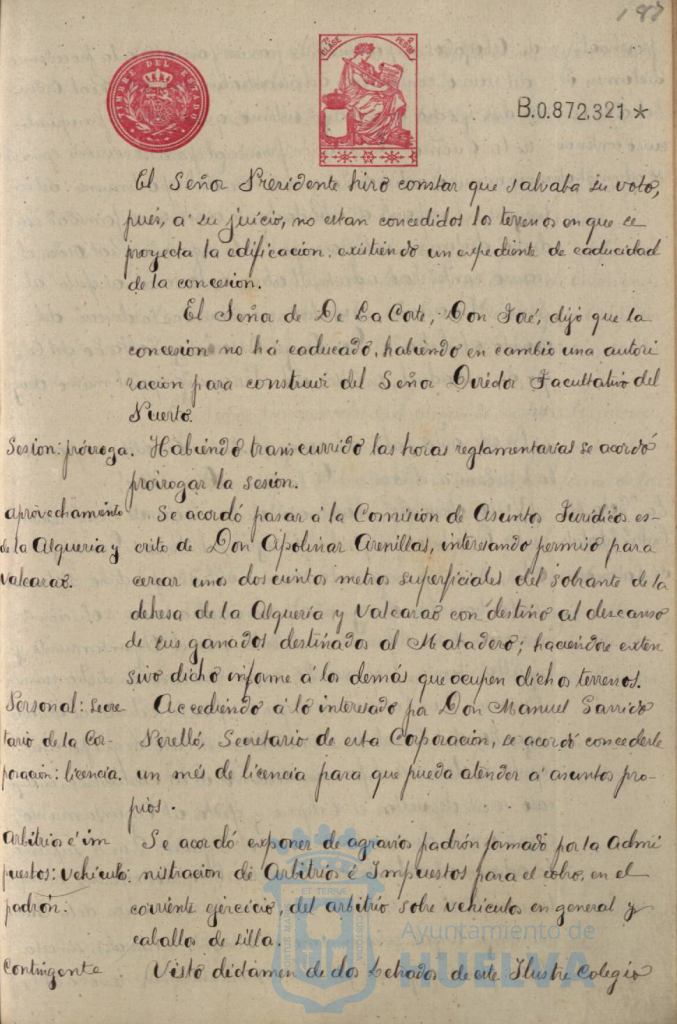 187
TIMBRE DEL ESTADO
7ª CLASE
PESETAS
B.0.872.321*
El Señor Presidente hizo constar que salvaba su voto,
pues, á su juicio, no estan concedidos los terrenos en que se
proyecta la edificación, existiendo un expediente de caducidad
de la concesion.
El Señor de De La Corte, Don José, dijo que la
concesion no há caducado, habiendo en cambio una autori
zación para construir del Señor Director Facultativo del
Puerto.
Sesion: prórroga. Habiendo transcurrido las horas reglamentarias se acordó
prorrogar la sesión.
Aprovechamiento Se acordó pasar á la Comision de Asuntos Jurídicos es-
de la Alqueria y crito de Don Apolinar Arenillas, interesando permiso para
Valcarao. cercar unos doscientos metros superficiales del sobrante de la
dehesa de la Alquería y Valcarao con destino al descanso
de sus ganados destinados al Matadero; haciendose exten
sivo dicho informe á los demás que ocupen dichos terrenos.
Personal: Secre Accediendo á lo interesado por Don Manuel Garrido
tario de la Cor- Perelló, Secretario de esta Corporación, se acordó concederle
poración: licencia. un més de licencia para que pueda atender á asuntos pro-
pios.
Arbitrios é im Se acordó exponer de agravios padrón formado por la Admi
puestos: vehículo: nistracion de Arbitrios é Impuestos para el cobro, en el
padrón. corriente ejercicio, del arbitrio sobre vehículos en general y
caballos de silla.
Contingente Visto dictámen de dos Letrados de este Ilustre Colegio
Ayuntamiento de
HUELVA